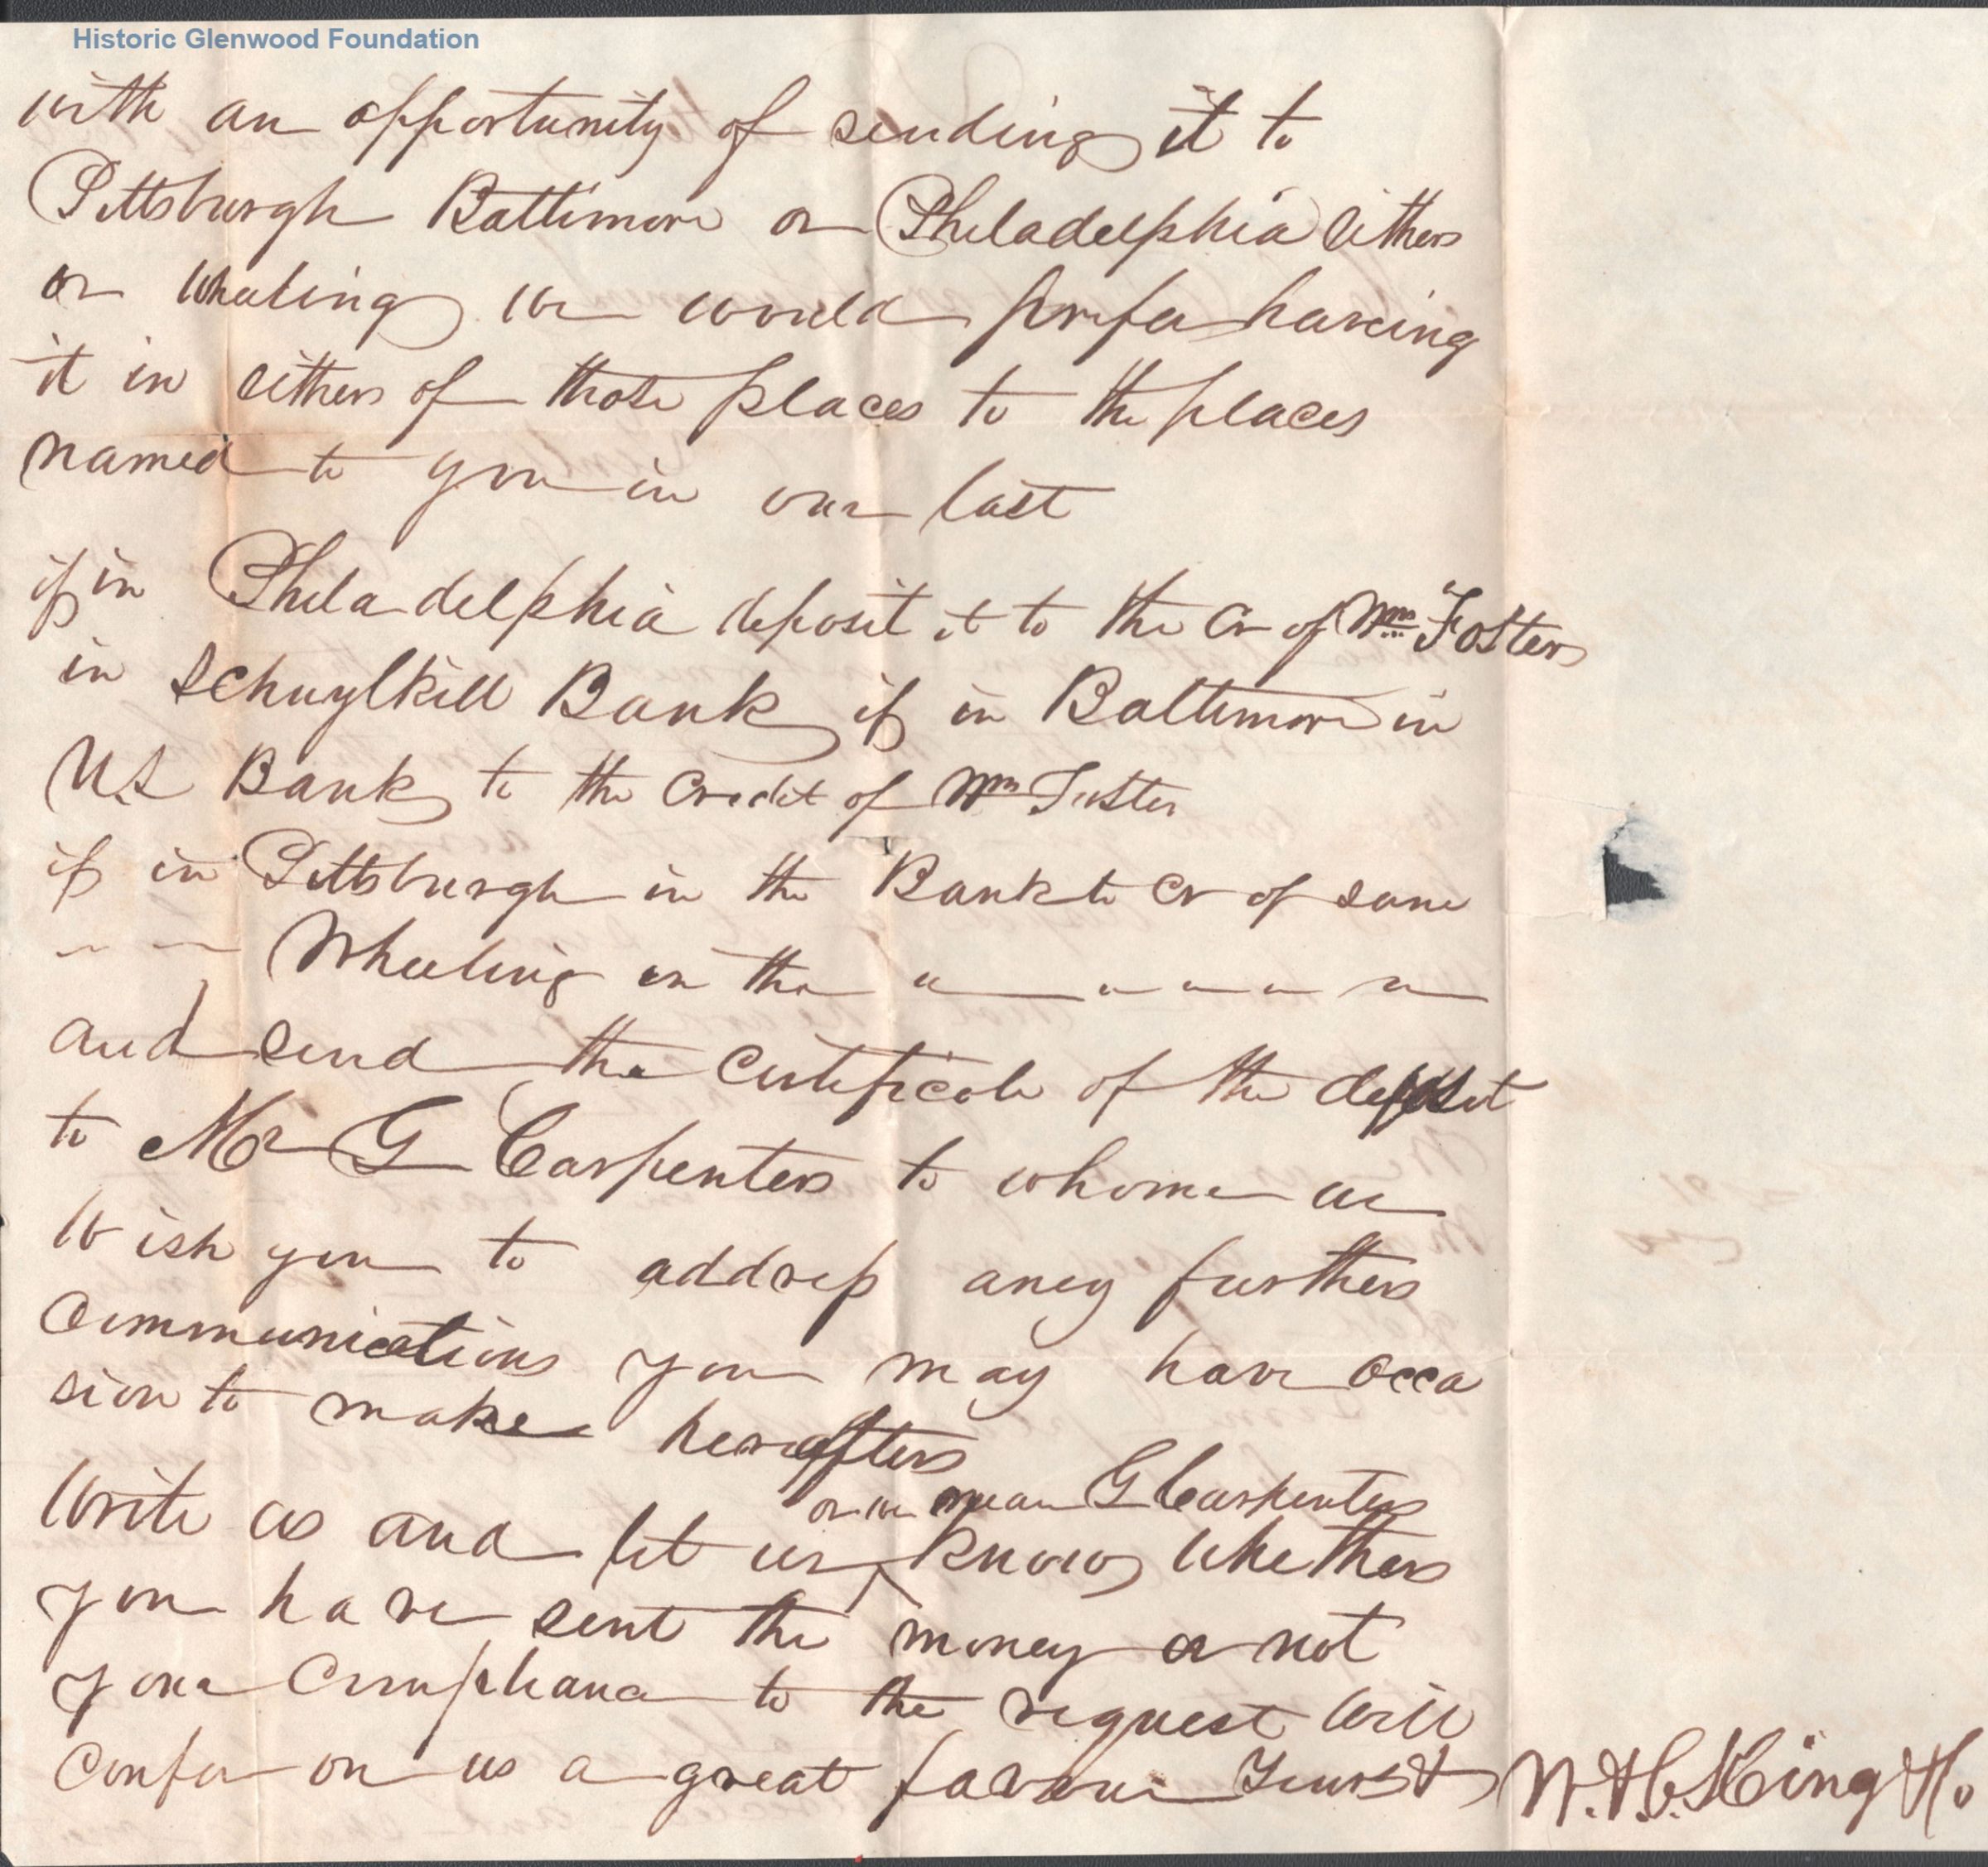 Historic Glenwood Foundation
with an opportunity of sending it to
Pittsburgh Baltimore or Philadelphia either
or Wheeling we would prefer having
it in either of those places to the places
named to you in our last
if in Philadelphia deposit it to the Cr of Wm Foster
in Schuylkill Bank if in Baltimore in
U.S Bank to the Credit of Wm Foster
if in Pittsburgh in the Bank to Cr of same
" " Wheeling in the " " " " "
and send the Certificate of the deposit
to Mr G Carpenter to whome we
wish you to address aney further
Communications you may have occa
sion to make hereafter
or we mean G Carpenter
write us and let us know whether
you have sent the money or not
your Complianc to the request will
Confer on us a great favour Yours &
W. H. C. King & Co